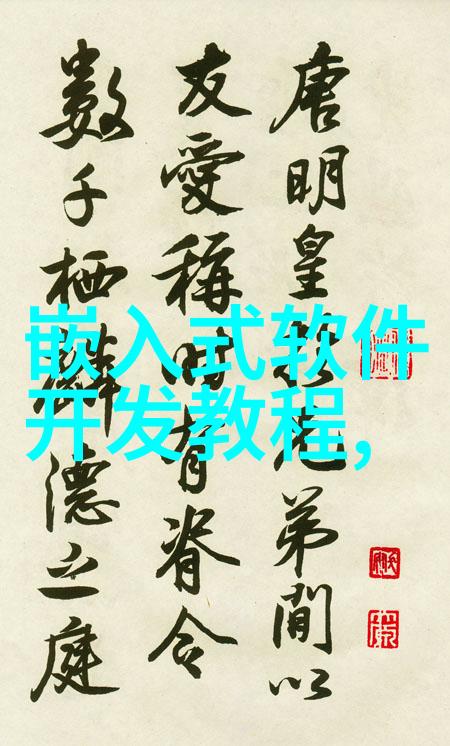 唐明皇於兄弟間以
友愛稱時有脊令
數千栖麟德之庭
嵌入式软件
开发教程,